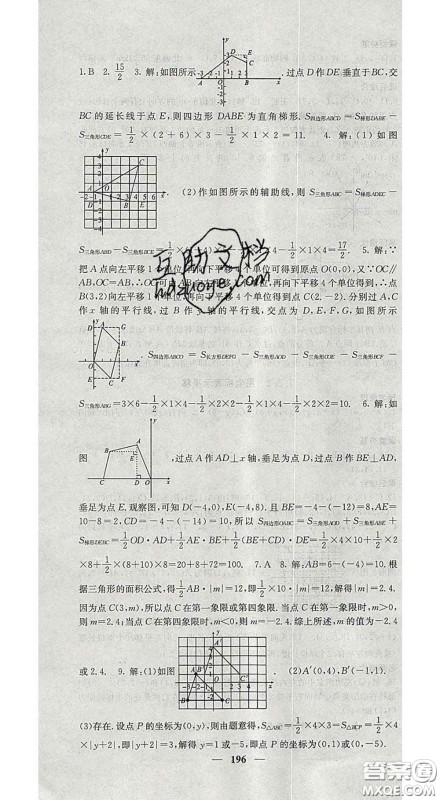 1.B 2. 15/2 3. 解:如图所示 .过点D作DE垂直于BC,交
BC的延长线于点E,则四边形DABE为直角梯形.S四边形ABCD=S梯形DABE-
S三角形CDE=1/2×(2+6)×3-1/2×1×2=11. 4. 解:(1)如图
.(2)作如图所示的辅助线,则S三角形ABC=S梯形ADEC-
S三角形ABD-S三角形BCE=
-1/2×1×4=17/2. 5. 解:∵
把A点向左平移1个单位,再向下平移4个单位可得到原点O(0,0),又∵OC∥
AB,OC=AB,
点B(3,2)向左平移1个单位,再向下平移4个单位得到点C(2,-2).分别过A,C
作x轴的平行线,过B作y轴的平行线,交点为D,E,F,G,如图所示
.S四边形ABCO=S长方形DEFG-S三角形AOD-S三角形COE-S三角形BCF-
S三角形ABG=3×6-1/2×1×4-1/2×2×2-1/2×1×4-1/2×2×2=10. 6. 解:如
图 ,过点A作AD⊥x轴,垂足为点D,过点B作BE⊥AD,
垂足为点E,观察图,可知D(-4,0),E(-4,8).且BE=-4-(-12)=8,AE=
10-8=2,CD=-4-(-14)=10,所以S四边形OABC=S三角形AOD+S三角形ABE+
S梯形DEBC=1/2OD·AD+1/2AE·BE+1/2(BE+CD)·DE=1/2×4×10+1/2×2
×8+1/2×(8+10)×8=20+8+72=100. 7.A 8. 解:AB=6-(-4)=10.根
据三角形的面积公式,得1/2AB·|m|=12,即1/2×10·|m|=12,解得|m|=2.4.
因为点C(3,m),所以点C在第一象限或第四象限.当点C在第一象限时,m>0,
则m=2.4;当点C在第四象限时,m<0,则m=-2.4.综上所述,m的值为-2.4
或2.4. 9. 解:(1)如图 .(2)A′(0,4),B′(-1,1).
(3)存在.设点P的坐标为(0,y),则由题意得,S三角形ABC=1/2×4×3=S三角形BCP=1/2×4
×|y+2|,即|y+2|=3,解得y=1或-5,即点P的坐标为(0,1)或(0,-5).
196
互助文档
hdzuoye.com
答案圈
MXQE.COM